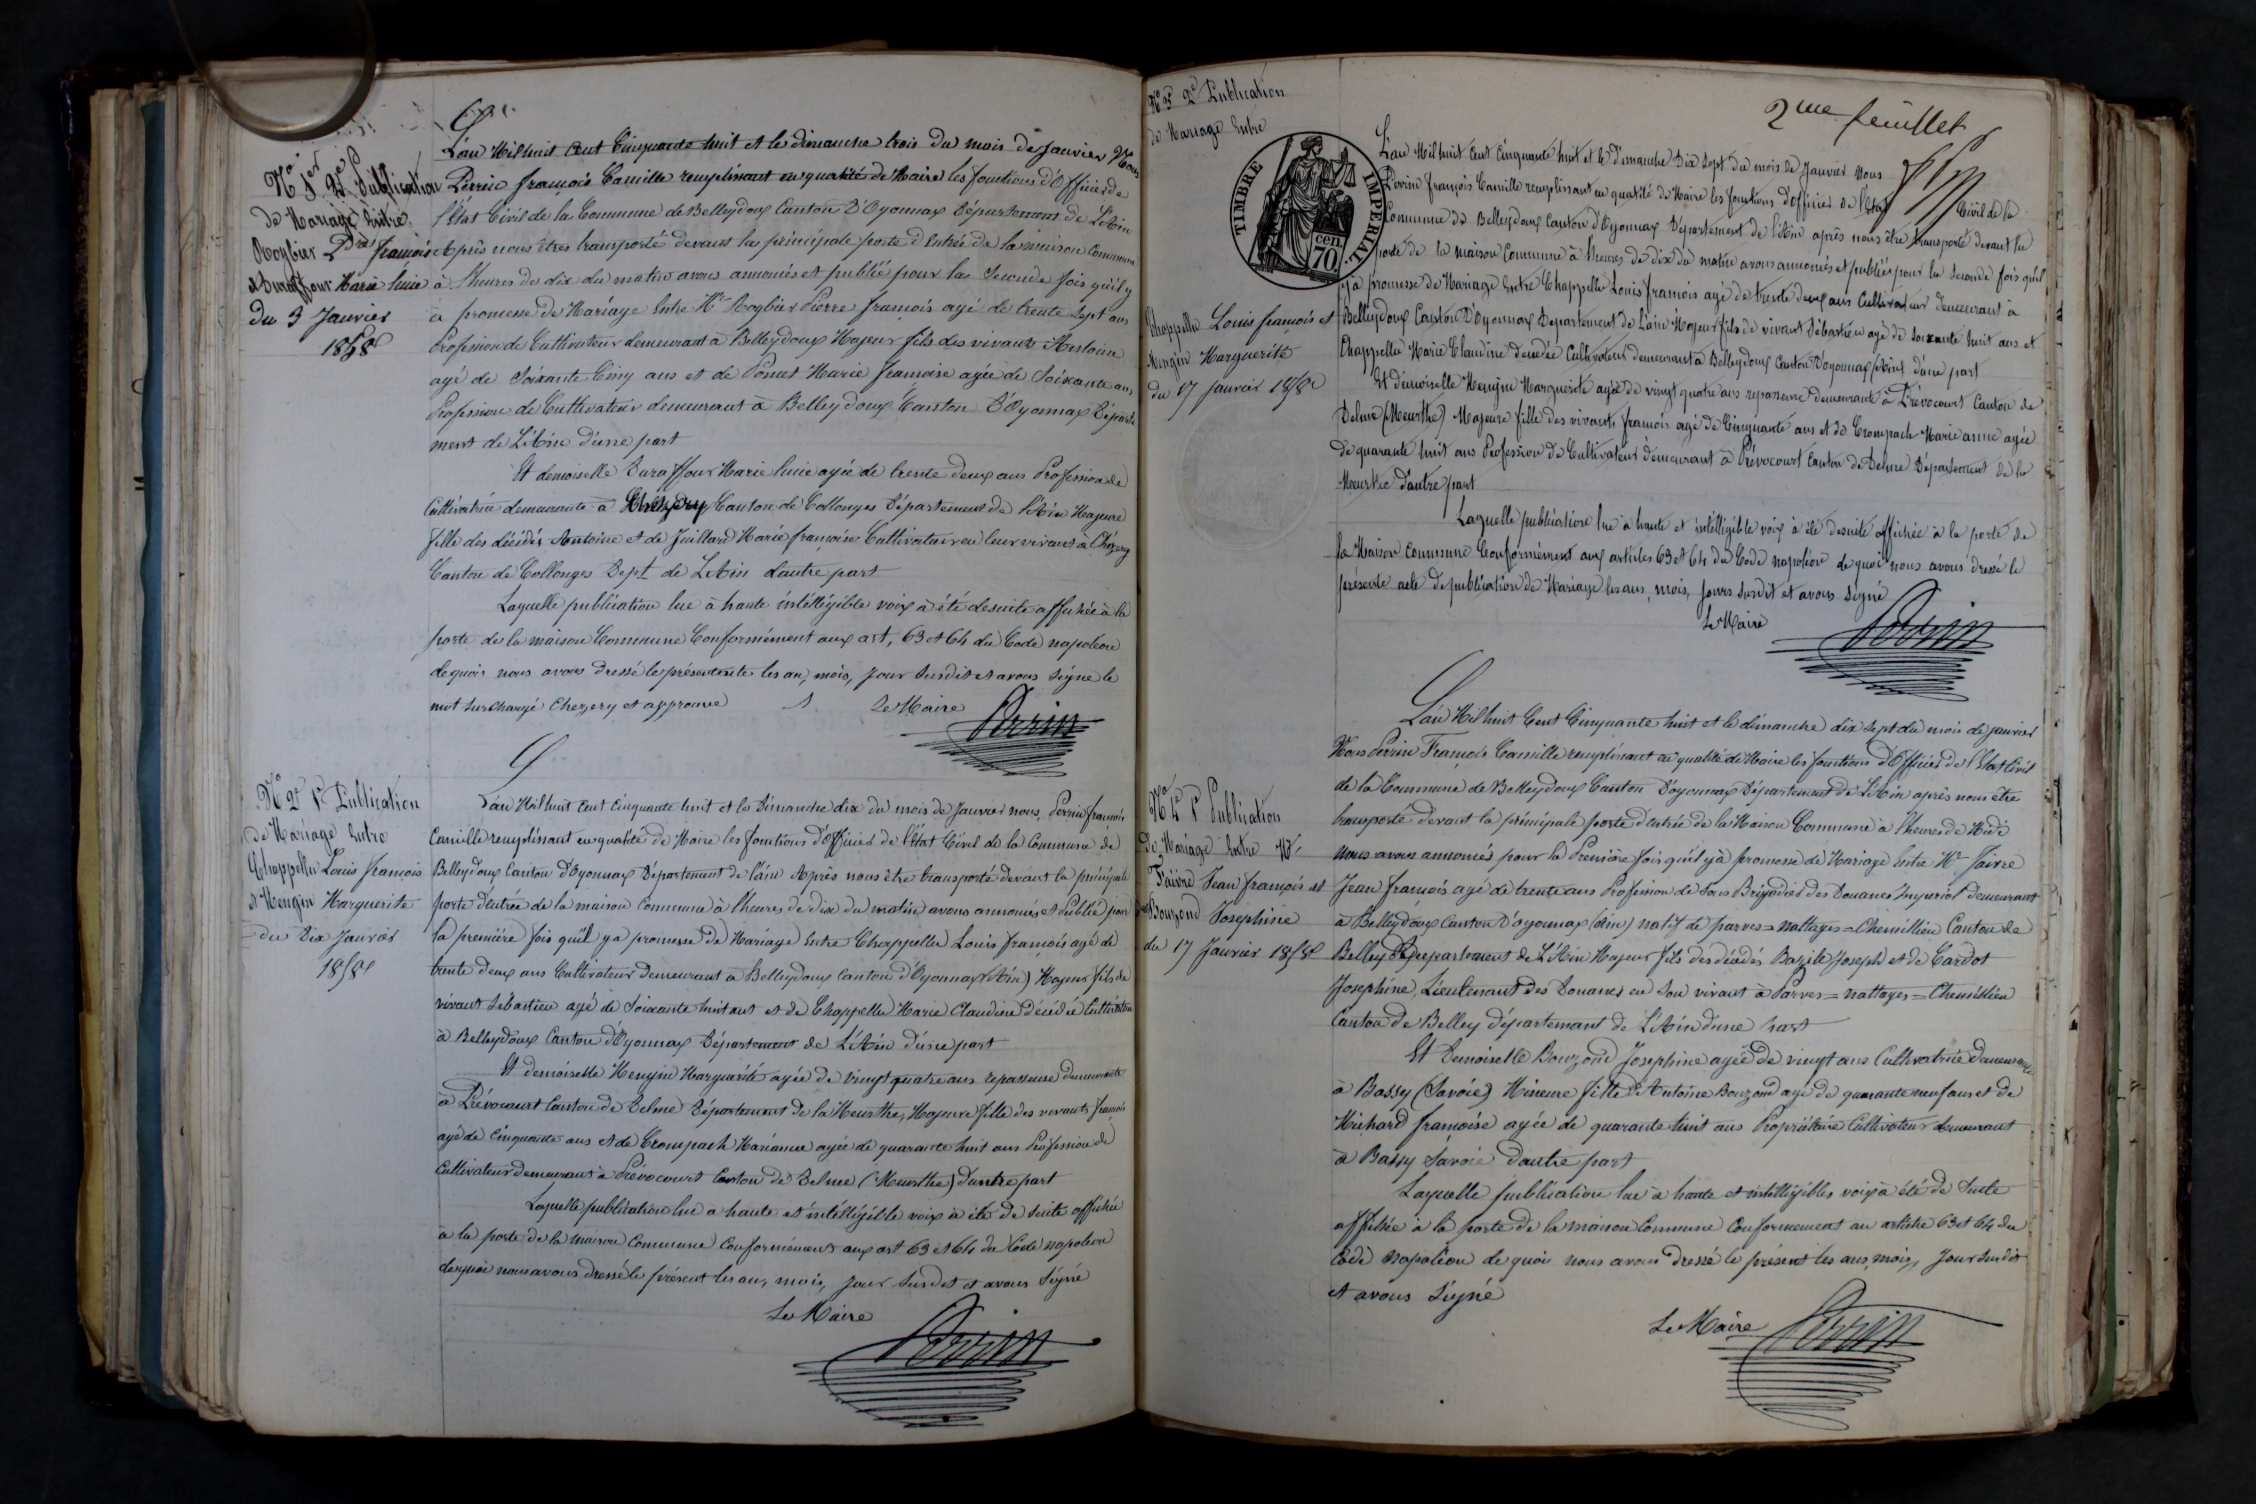 No 1er 2e Publication
de Mariage Entre
Rogbier Pre françois
et Duraffour Marie lucie
du 3 Janvier
1858
L'an Mil huit Cent Cinquante huit et le dimanche trois du mois de Janvier Nous
Perrin françois Camille remplissant en qualité de Maire les fonctions d'Officier de
l'État Civil de la Commune de Belleydoux Canton D'Oyonnax Département de L'Ain
Après nous êtres transporté devant la principale porte d'Entrée de la maison Commune
à l'heures de dix du matin avons annoncés et publié pour la Seconde fois qu'il y
à promesse de Mariage Entre Mr Rogbier Pierre françois agé de trente Sept ans
Profession de Cultivateur demeurant à Belleydoux Majeur fils des vivants Antoine
agé de Soixante Cinq ans et de Poncet Marie francoise agée de Soixante ans
Profession de Cultivateur demeurant à Belleydoux Canton D'Oyonnax Départe
ment de L'Ain d'une part
Et demoiselle Duraffour Marie lucie agée de trente deux ans Profession de
Cultivatrice demeurante à Chézery Canton de Collonges Département de l'Ain Majeure
fille des décédés Antoine et de Juillard Marie françoise Cultivateur en leur vivant à Chézery
Canton de Collonges Dept de L'Ain d'autre part
Laquelle publication lue à haute intélligible voix à été desuite affichée à la
porte de la maison Commune Conformément aux art, 63 et 64 du Code napoléon
dequoi nous avons dressé le présent acte les an, mois, jour Susdit et avons Signé le
mot Surchargé Chezery et approuvé
Le Maire
Perrin
No 2 1e Publication
de Mariage Entre
Chappellu Louis François
et Mengin Marguerite
du Dix Janvier
1858
L'an Mil huit Cent Cinquante huit et le Dimanche dix du mois de Janvier nous Perrin francois
Camille remplissant en qualité de Maire les fonctions d'Officier de l'État Civil de la Commune de
Belleydoux Canton D'Oyonnax Département de l'Ain Après nous être transporté devant la principale
porte d'entrée de la maison Commune à l'heures de dix du matin avons annoncés et Publié pour
la première fois qu'il y a promesse de Mariage Entre Chappellu Louis françois agé de
trente deux ans Cultivateur Demeurant à Belleydoux Canton d'Oyonnax (Ain) Majeur fils de
vivant Sebastien agé de Soixante huit ans et de Chappellu Marie Claudine Décédée Cultivateur
à Belleydoux Canton d'Oyonnax Département de L'Ain d'une part
Et demoiselle Mengin Marguerite agée de vingt quatre ans repasseuse demeurante
à Prévocourt Canton de Delme Département de la Meurthe, Majeure fille des vivants françois
agé de Cinquante ans et de Crompach Marianne agée de quarante huit ans Profession de
Cultivateur demeurant à Prévocourt Canton de Delme (Meurthe) d'autre part
Laquelle publication lue a haute et intélligible voix à été de Suite affichée
à la porte de la maison Commune Conformément aux art 63 et 64 du Code napoléon
dequoi nous avons dressé le présent les an, mois, jour Susdit et avons Signé
Le Maire
Perrin
2me feuillet
No 3 2e Publication
de Mariage Entre
Chappellu Louis francois et
Mengin Marguerite
du 17 janvier 1858
TIMBRE IMPERIAL
70 cen.
L'an Mil huit Cent Cinquante huit et le Dimanche Dix Sept du mois de Janvier Nous
Perrin François Camille remplissant en qualité de Maire les fonctions d'Officier de l'État Civil de la
Commune de Belleydoux Canton d'Oyonnax Département de l'Ain après nous être transporté devant la
porte de la maison Commune à l'heures de dix du matin avons annoncés et publiés pour la Seconde fois qu'il
y a promesse de Mariage Entre Chappellu Louis francois agé de trente deux ans Cultivateur Demeurant à
Belleydoux Canton D'Oyonnax Département de L'ain Majeur fils de vivant Sébastien agé de Soixante huit ans et
Chappellu Marie Claudine Décédée Cultivateur demeurant à Belleydoux Canton D'oyonnax (Ain) d'une part
Et demoiselle Mengin Marguerite agée de vingt quatre ans repasseuse Demeurante à Prévocourt Canton de
Delme (Meurthe) Majeure fille des vivants françois agé de Cinquante ans et de Crompach Marie anne agée
de quarante huit ans Profession de Cultivateur demeurant à Prévocourt Canton de Delme Département de la
Meurthe d'autre part
Laquelle publication lue à haute et intélligible voix à été desuite affichée à la porte de
la Maison Commune Conformément aux articles 63 et 64 du Code napoléon de quoi nous avons dressé le
présente acte de publication de Mariage les ans, mois, jours Susdit et avons Signé
Le Maire
Perrin
No 4 1e Publication
de Mariage Entre Mr
Faivre Jean françois et
Bouzond Josephine
du 17 Janvier 1858
L'an Mil huit Cent Cinquante huit et le dimanche dix Sept du mois de janvier
Nous Perrin François Camille remplissant en qualité de Maire les fonctions d'Officier de l'État Civil
de la Commune de Belleydoux Canton D'oyonnax Département de L'Ain après nous être
transporté devant la principale porte d'entrée de la Maison Commune à l'heures de Midi
nous avons annoncés pour la Première fois qu'il y à promesse de Mariage Entre Mr Faivre
Jean françois agé de trente ans Profession de Sous Brigadier des Douanes Imperial demeurant
à Belleydoux Canton D'oyonnax (Ain) natif de parves = nattages = Chemillieu Canton de
Belley Département de L'Ain Majeur fils des décédés Bazile Joseph et de Cardot
Josephine, Lieutenant des Douanes en Son vivant à Parves = nattages = Chemillieu
Canton de Belley département de L'Ain d'une part
Et Demoiselle Bouzond Josephine agée de vingt ans Cultivatrice demeurante
à Bassy (Savoie) Mineure fille d'Antoine Bouzond agé de quarante neuf ans et de
Michard francoise agée de quarante huit ans Propriétaire Cultivateur demeurant
à Bassy Savoie d'autre part
Laquelle publication lue à haute et intélligibles voix à été de Suite
affichée à la porte de la maison Commune Conformement au article 63 et 64 du
Code Napoléon de quoi nous avons dressé le présent les ans, mois, Jour Susdit
et avons Signé
Le Maire
Perrin